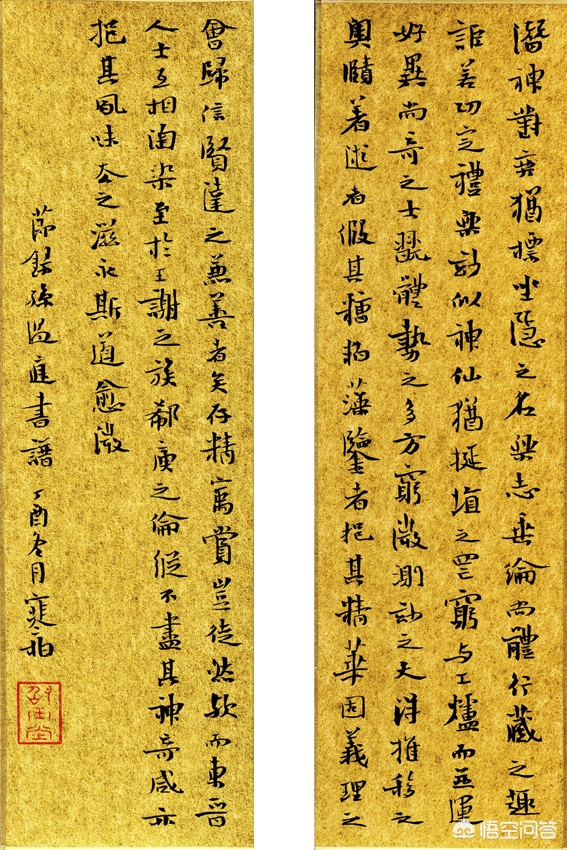 潛神對奕猶標坐隱之名樂志垂綸尚體行藏之趣
詎若功定禮樂妙似神仙猶挻埴之罔窮与工爐而並運
好異尚奇之士翫體勢之多方窮微測妙之夫得推移之
奧賾著述者假其糟粕藻鑒者挹其精華固義理之
會歸信賢達之兼善者矣存精寓賞豈徒然歟而東晉
人士互相陶染至於王謝之族郗庾之倫縱不盡其神奇咸亦
挹其風味去之滋永斯道愈微
節錄孫過庭書譜 丁酉冬月
悟空问答